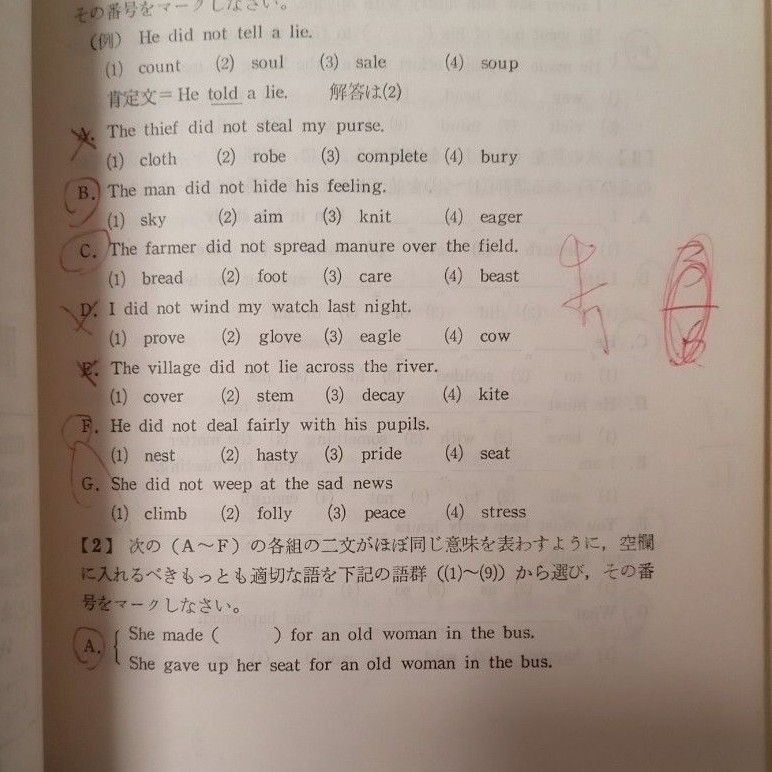 その番号をマークしなさい。
(例) He did not tell a lie.
(1) count (2) soul (3) sale (4) soup
肯定文=He told a lie. 解答は(2)
A. The thief did not steal my purse.
(1) cloth (2) robe (3) complete (4) bury
B. The man did not hide his feeling.
(1) sky (2) aim (3) knit (4) eager
C. The farmer did not spread manure over the field.
(1) bread (2) foot (3) care (4) beast
D. I did not wind my watch last night.
(1) prove (2) glove (3) eagle (4) cow
E. The village did not lie across the river.
(1) cover (2) stem (3) decay (4) kite
F. He did not deal fairly with his pupils.
(1) nest (2) hasty (3) pride (4) seat
G. She did not weep at the sad news
(1) climb (2) folly (3) peace (4) stress
【2】 次の(A～F)の各組の二文がほぼ同じ意味を表わすように,空欄
に入れるべきもっとも適切な語を下記の語群((1)～(9))から選び,その番
号をマークしなさい。
A. She made ( ) for an old woman in the bus.
She gave up her seat for an old woman in the bus.